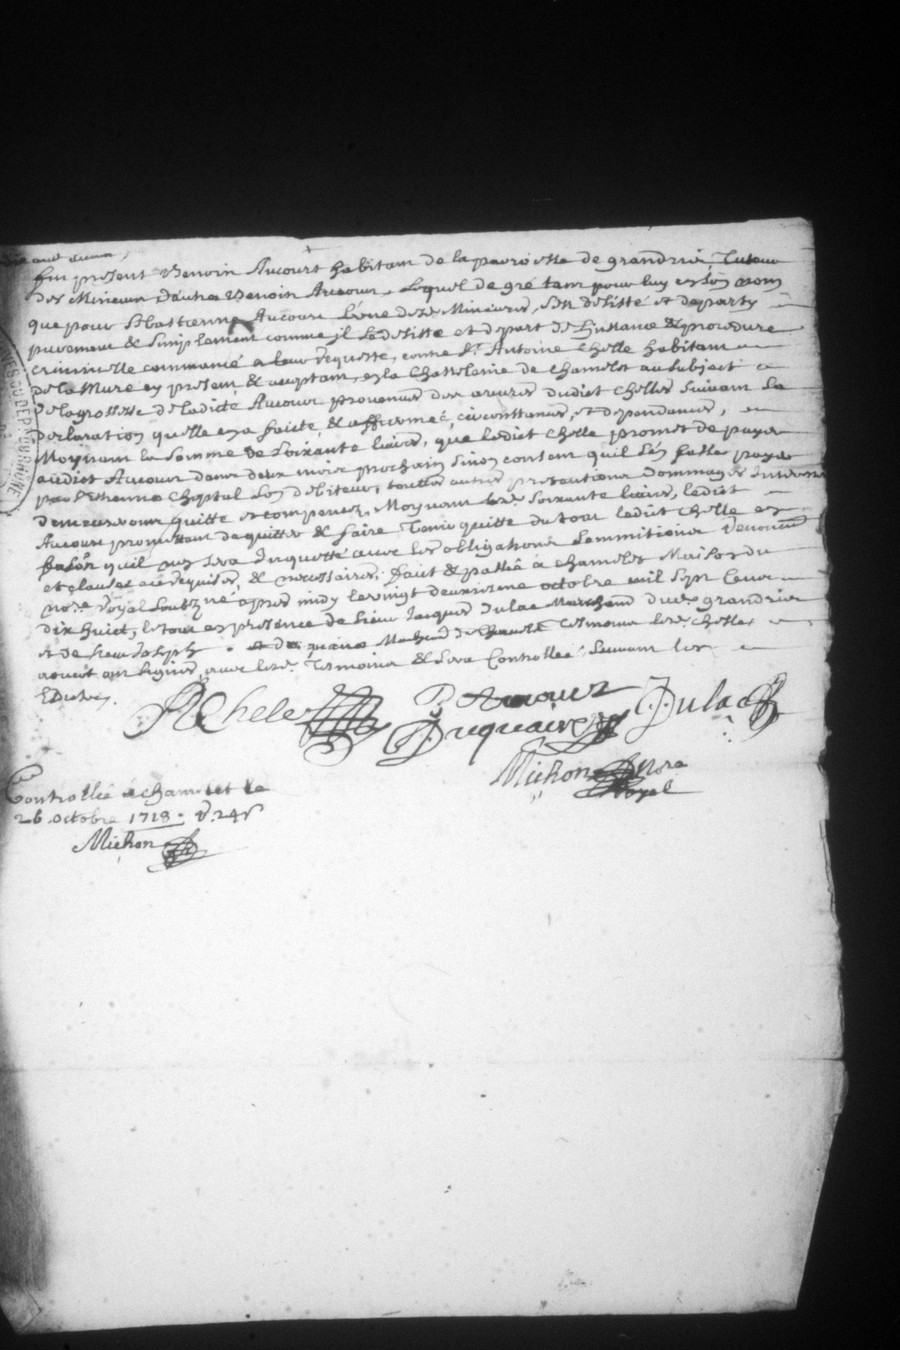 fut présent Benoin Aucourt habitant de la parroisse de grandris, Tuteur
des Mineurs d'autre Benoin Aucour, Lequel de gré tant pour luy en son nom
que pour Sebastienne Aucour l'une desd. Mineures, s'est desisté et departy
purement & simplement comme jl se desiste et depart de l'instance & procedure
criminelle commancé a leur requeste, contre Sr. Antoine Chelle habitant
de la Mure cy présent & acceptant, en la Chastelenie de Chamelet au subject
de la grossesse de ladicte Aucour provenue des œuvres dudict Chelles suivant la
declaration quelle en a faicte & affirmeé, circonstances, et dependances,
Moyenant la somme de soixante livres, que ledict Chelle promet de payer
audict Aucour dans deux mois prochain sinon consent quil s'en fasse payer
par Estienne Chystal son debiteur, touttes autres pretentions dommages Interests
demeureront quitte et compencez, Moyenant lesd. soixante livres, ledict
Aucour promettant dacquitter & faire tenir quitte du tout ledict Chelle en
fasson quil n'en sera Inquietté avec les obligations soummitions renon[...]
et clauses ad requises & necessaires; faict & passé à Chamelet Maison du
nore. Royal soubzné apres midy le vingt deuxieme octobre mil sept cent
dix huict, le tout en presence de sieur Jacques Dulac Marchand dud. grandris
et de sieur Joseph Duquaire Marchand de Chamelet tesmoins lesd. Chelles
avec lesd. tesmoins & sera Controllée suivant les
Edicts.
AChelles B Aucourt Dulac
J Duquaire
Michon Nore
Royal
Controllée a chamelet le
26 octobre 1718. r. 24 s
Michon